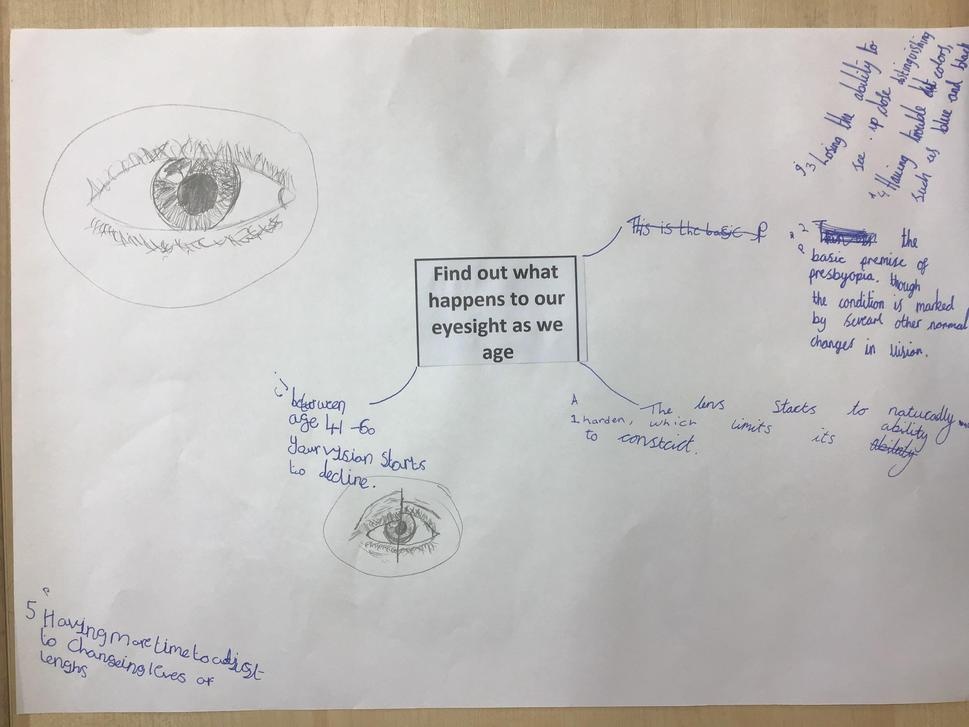 Find out what
happens to our
eyesight as we
age
This is the basic P
A
1 The lens starts to naturally
harden, which limits its ability
to constrict. ability
2 the
basic premise of
presbyopia. though
the condition is marked
by sevearl other normal
changes in vision.
3 Losing the ability to
see up close
4 Having trouble distinguishing
colors,
such as blue and black
5 Having more time to adjist
to changeing leves of
lenghs
between
age 41-60
your vision starts
to decline.